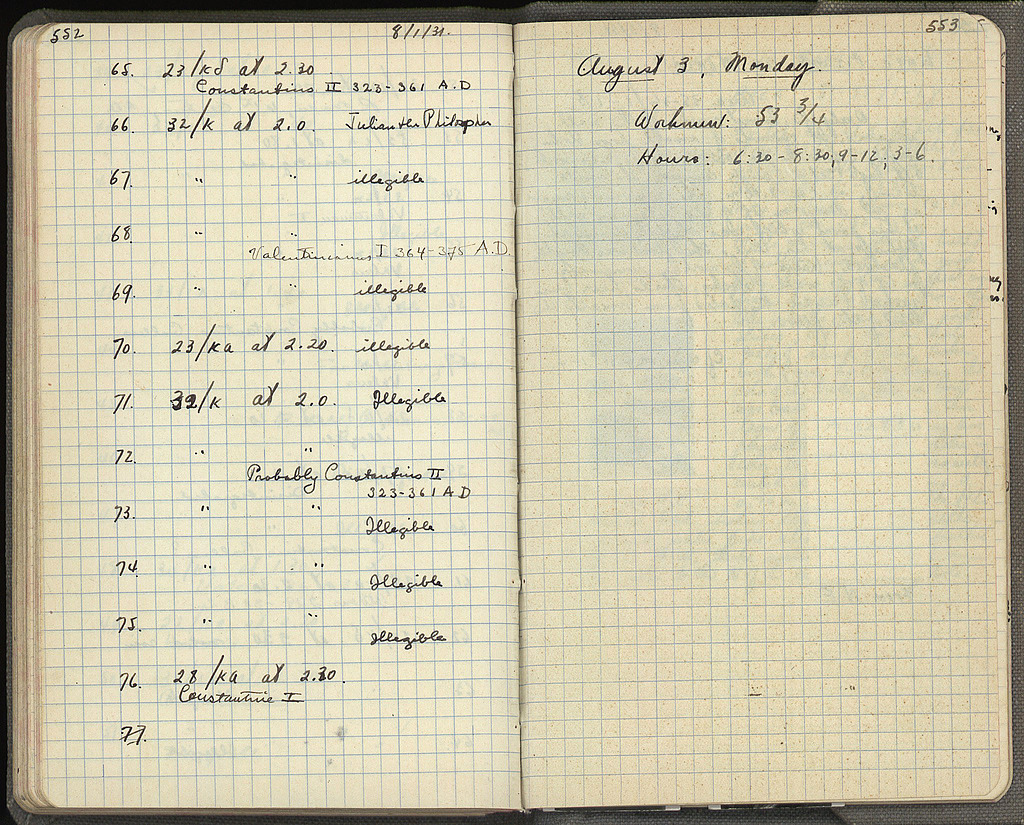 552
8/1/31.
65. 23/ΚΔ at 2.30
Constantius II 323-361 A.D
66. 32/Κ at 2.0. Julian the Philosopher
67. " " illegible
68. " "
Valentinianus I 364-375 A.D.
69. " " illegible
70. 23/ΚΑ at 2.20. illegible
71. 32/Κ at 2.0. Illegible
72. " "
Probably Constantius II
323-361 A D
73. " "
Illegible
74. " "
Illegible
75. " "
Illegible
76. 28/ΚΑ at 2.30.
Constantine I
77.
553
August 3, Monday.
Workmen: 53 3/4
Hours: 6:30-8:30; 9-12; 3-6.